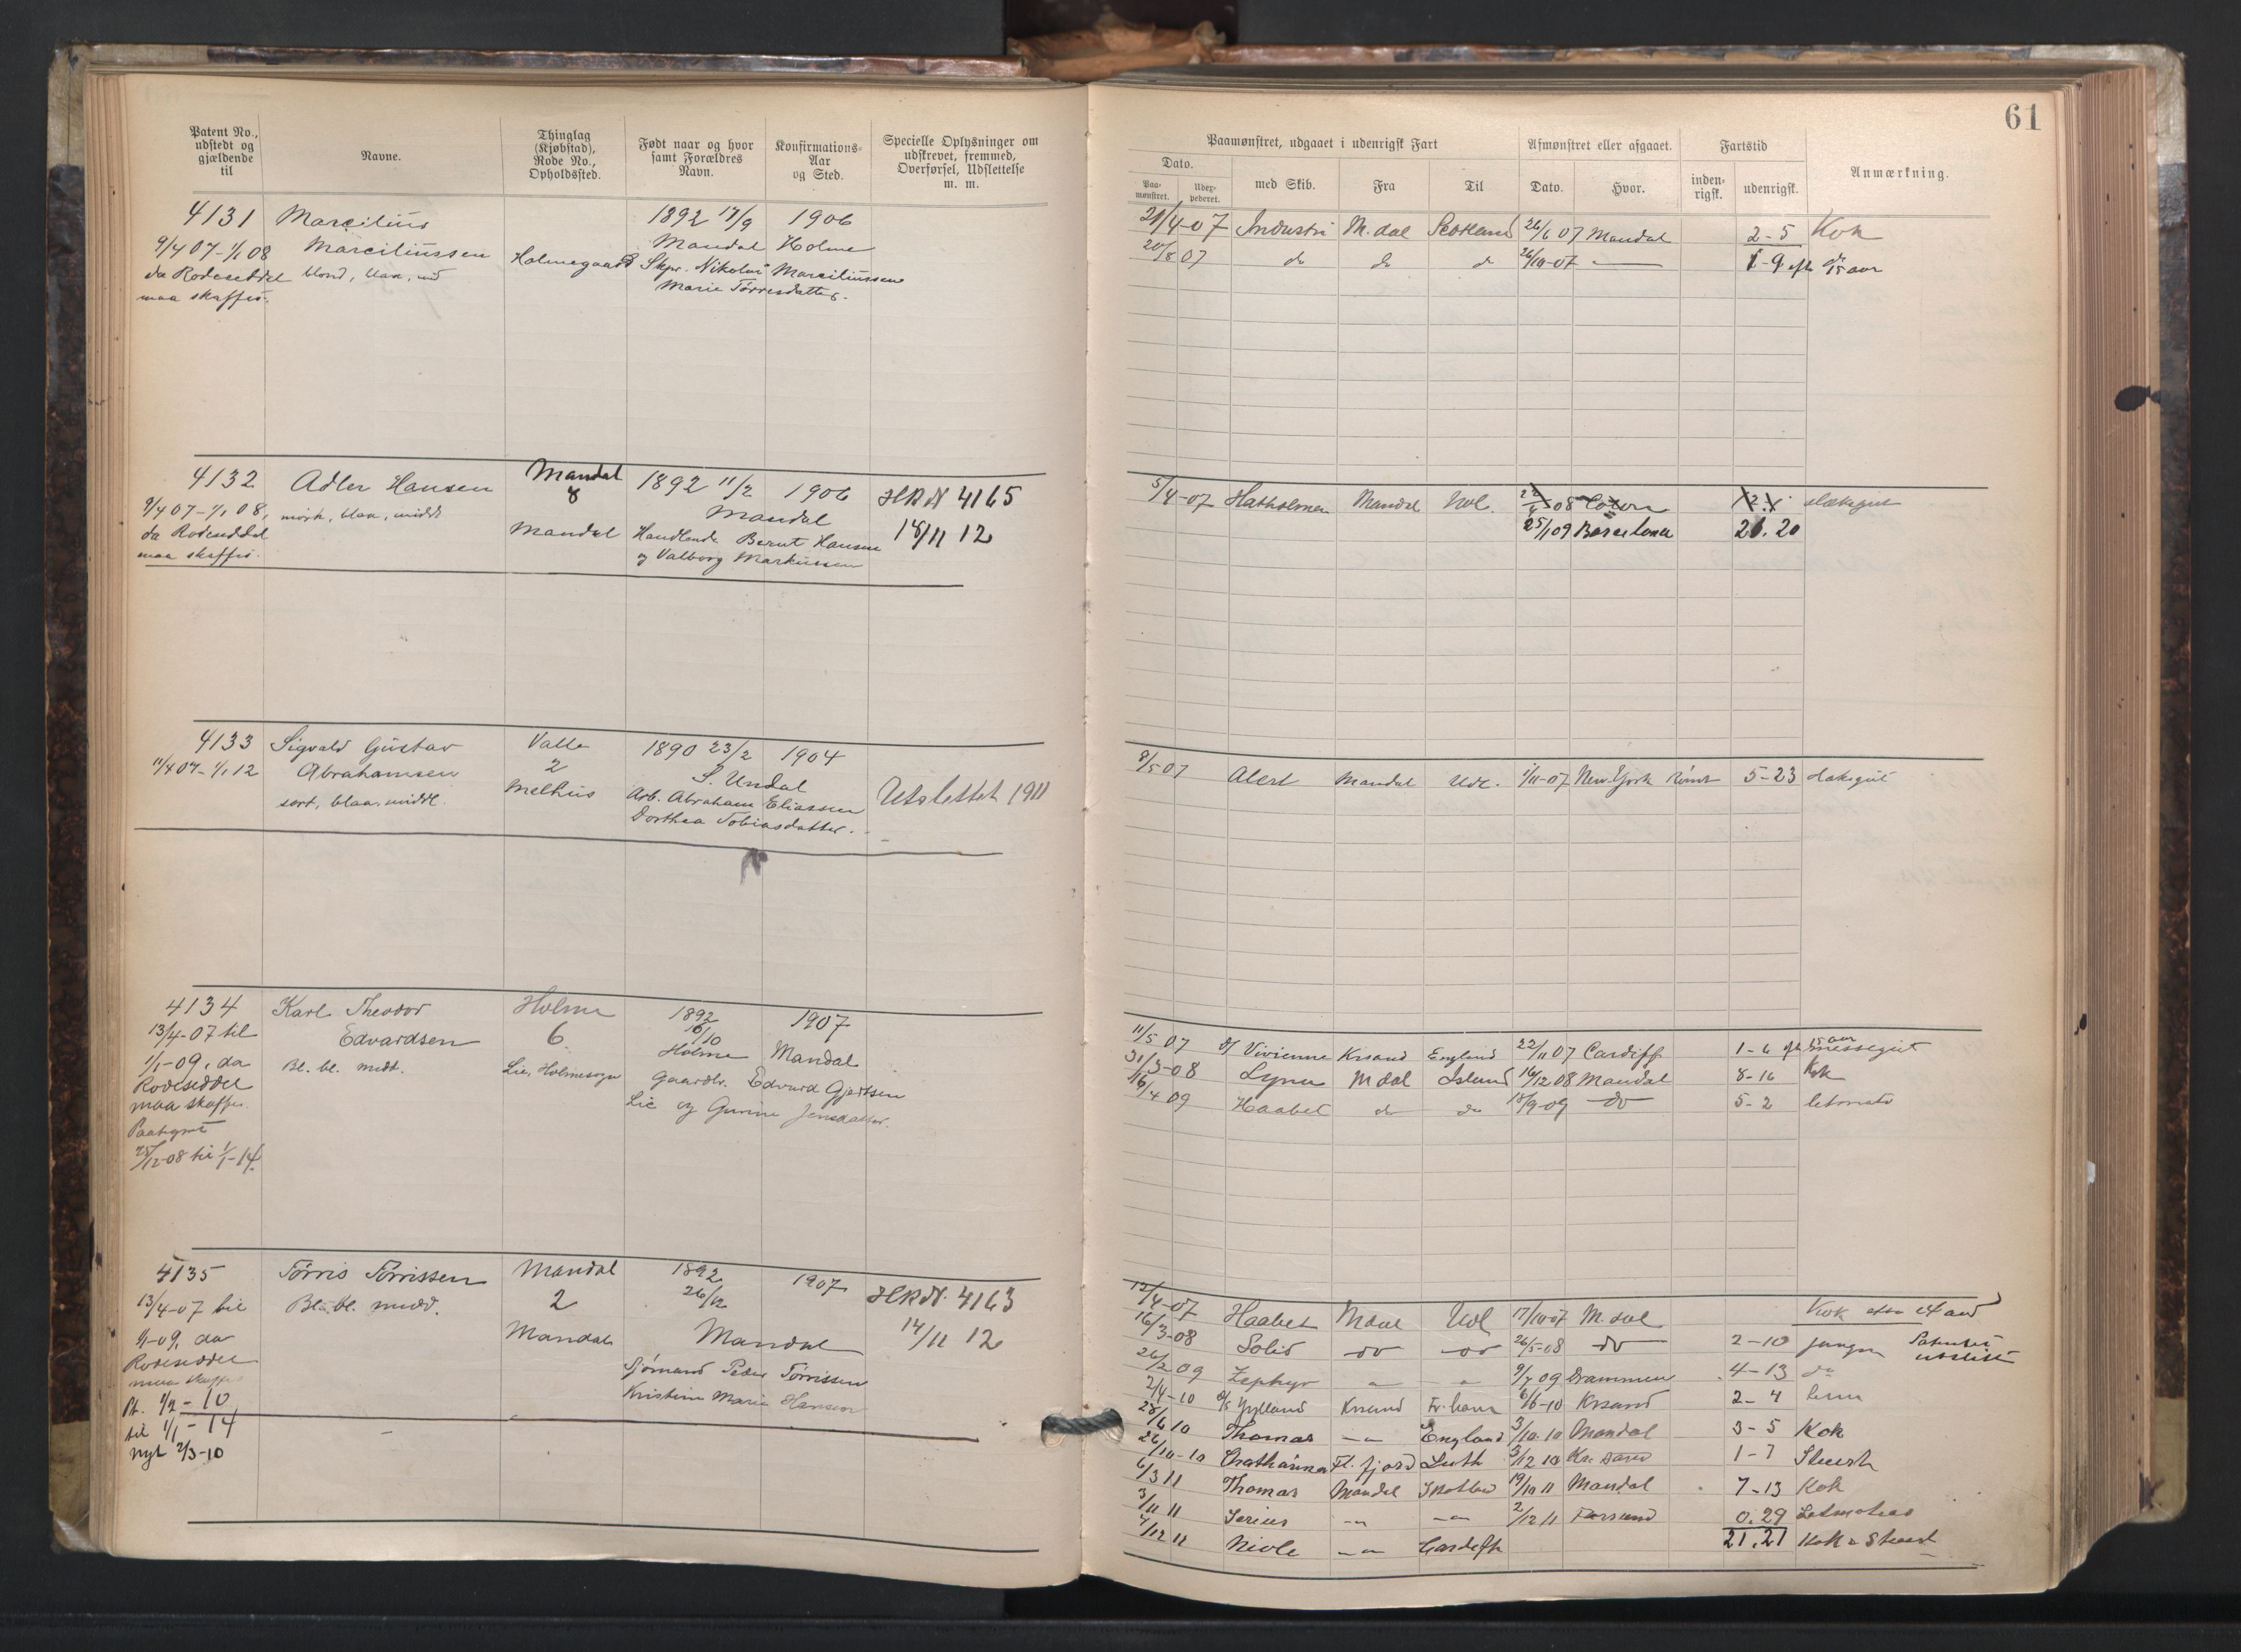 61
Patent No., udstedt og gjældende til
Navne.
Thinglag (Kjøbstad), Rode No., Opholdssted.
Født naar og hvor samt Forældres Navn.
Konfirmations-Aar og Sted.
Specielle Oplysninger om udskrevet, fremmed, Overførsel, Udslettelse m. m.
Paamønstret, udgaaet i udenrigsk Fart
Afmønstret eller afgaaet.
Fartstid
Anmærkning.
Dato.
Paa-mønstret.
med Skib.
Fra
Til
Dato.
Hvor.
inden-rigsk.
udenrigsk.
4131 Marcilius 1892 17/9 1906
9/4 07 - 1/1 08 Marciliussen Holmegaard Mandal Holme
da Rodeseddel blond, blaa, md Skpr. Nikolai Marciliussen
maa skaffes. Marie Tørresdatter.
21/4-07 Industri M.dal Scotland 26/6 07 Mandal 2-5 Kok
20/8 07 do do do 26/10-07 1-9 efter 15 aar
4132 Adler Hansen Mandal 1892 11/2 1906 HR N 4165
9/4 07 - 1/1 08, mørk, blaa, midd 8 Mandal
da Rodeseddel Mandal Handlende Bernt Hansen 18/11 12
maa skaffes. og Valborg Markussen
5/4-07 Hatholmen Mandal Udl. 08 dæksgut
25/1 09 Barcelona 21.20
4133 Sigvald Gustav Valle 1890 23/2 1904
11/4 07 - 1/1 12 Abrahamsen 2 S. Undal
sort, blaa, middl. Melhus Arb. Abraham Eliassen Utslettet 1911
Dorthea Tobiasdatter.
8/5-07 Alert Mandal Udl. 1/11-07 New York rømt 5-23 dæksgut
4134 Karl Theodor Holme 1892 1907
13/4-07 til Edvardsen 6 16/10
1/1-09, da Bl. bl. midt. Lie, Holmesogn Holme Mandal
Rodeseddel Gaardbr. Edvard Gjertsen
maa skaffes. Lie og Gunine Jensdatter.
Paategnet
12-08 til 1/1-14.
11/5 07 Vivienne Krsand England 22/11 07 Cardiff 1-6 15 aar messegut
31/3-08 Lyna Mdal Island 16/12 08 Mandal 8-16 Kok
16/4 09 Haabet do do 18/9-09 do 5-2 letmatr
4135 Tørris Tørrissen Mandal 1892 1907 HR N. 4163
13/4-07 til Bl. bl. midd. 2 26/12
1/1-09, da Mandal Mandal 14/11 12
Rodeseddel Sjømand Peder Tørrissen
maa skaffes Kristine Marie Hansen
Pt. 1/2-10
til 1/1-14
nyt 2/3-10
12/4-07 Haabet Mdal Udl 17/10 07 M.dal Kok
16/3-08 Solid do do 26/5-08 do 2-10 jungm
26/2 09 Zephyr 9/7 09 Drammen 4-13 do
2/4-10 Jylland Krsand 6/6-10 Krsand 2-4
28/6 10 Thomas England 3/10-10 Mandal 3-5 Kok
26/10-10 Fl. fjord Leith 3/12 10 1-7
6/3 11 Thomas Mandal 19/10 11 Mandal 7-13 Kok
3/11 11 Serius 2/12 11 Farsund 0.29 Letmatros
7/12 11 21.21 Kok